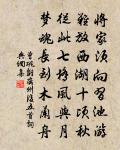 將家須向習池游
難放西湖十頃秋
從此七橋風與月
夢魂長到木蘭舟
曾鞏離齊州後五首詞
典網集